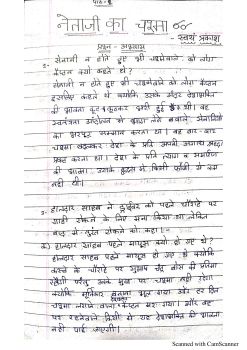 पाठ-
नेताजी का चश्मा
-स्वयं प्रकाश
प्रश्न-अभ्यास
1- सेनानी न होते हुए भी चश्मेवाले को लोग
कैप्टन क्यों कहते थे?
सेनानी न होते हुए भी चश्मेवाले को लोग कैप्टन
इसलिए कहते थे क्योंकि उसके अंदर देशभक्ति
की भावना कूट-कूटकर भरी हुई थी। वह
स्वतंत्रता आंदोलन में भाग लेने वाले सेनानियों
का भरपूर सम्मान करता था। वह बार-बार
चश्मा बदलकर देश के प्रति अपनी अगाध श्रद्धा
प्रकट करता था। देश के प्रति त्याग व समर्पण
की भावना उसके हृदय में किसी फौजी से कम
नहीं थी।
2- हालदार साहब ने ड्राइवर को पहले चौराहे पर
गाड़ी रोकने के लिए मना किया था लेकिन
बाद में तुरंत रोकने को कहा-
क) हालदार साहब पहले मायूस क्यों हो गए थे?
हालदार साहब पहले मायूस हो गए थे क्योंकि
कस्बे के चौराहे पर सुभाष चंद्र बोस की प्रतिमा
रहेगी परंतु उनके मुख पर चश्मा नहीं रहेगा
क्योंकि मूर्तिकार बनाना भूल गया और हर दिन
चश्मा लगाने वाला कैप्टन मर गया। और वह
पर रहनेवाले किसी में वह देशभक्ति की भावना
नहीं पाई जाएगी।
Scanned with CamScanner